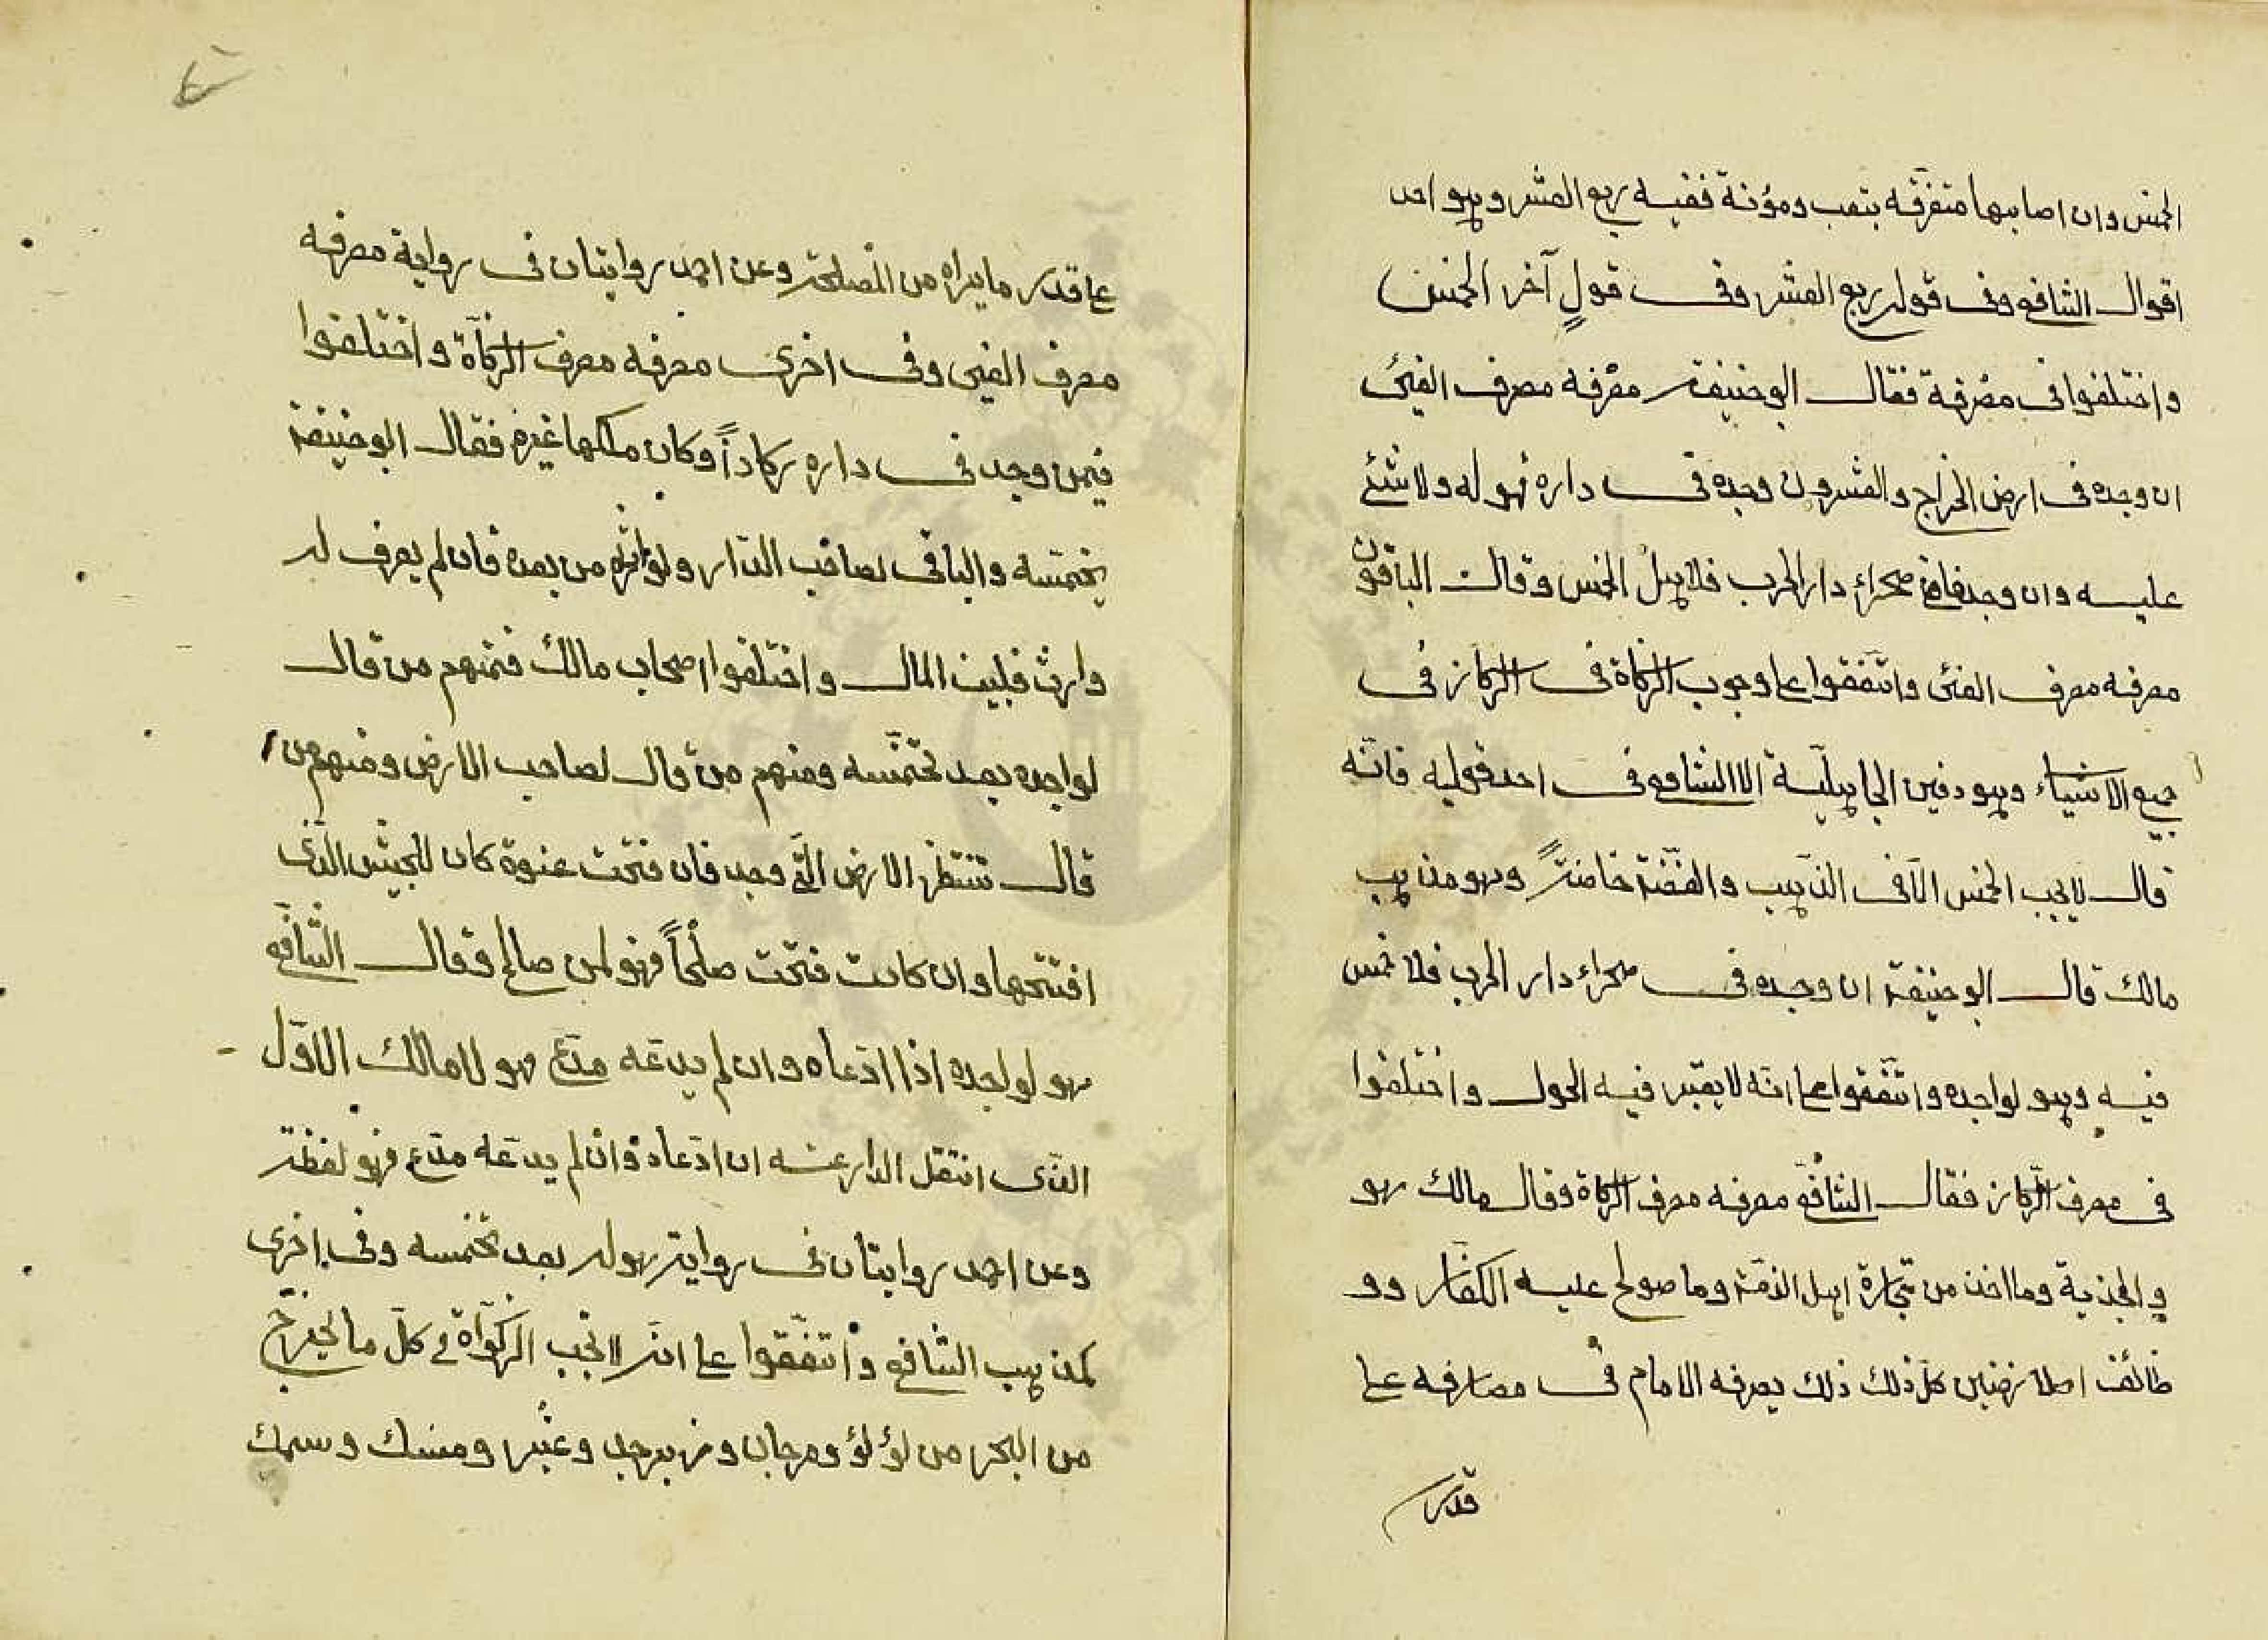 الخمس وان اصابها متفرقه بتعب ومؤنة ففيه ربع العشر وهو احد
اقوال الشافعي وفى قوله ربع العشر وفى قولٍ آخر الخمس
واختلفوا فى مصرفة فقال ابو حنيفة مصرفه مصرف الفيئ
ان وجده فى ارض الخراج والعشر وان وجده فى داره فهو له ولا شئ
عليه وان وجده فى صحراء دار الحرب فلا الخمس وقالت الباقون
مصرفه مصرف الفئ واتفقوا على وجوب الزكاة فى الركاز فى
جميع الاشياء وهو دفين الجاهليّة الا الشافعي فى احد قوليه فانّه
قال لا يجب الخمس الّا فى الذهب والفضّة خاصّةً وهو مذهب
مالك قال ابو حنيفة ان وجده فى صحراء دار الحرب فلا خمس
فيه وهو لواجده واتفقوا على انه لا يعتبر فيه الحول واختلفوا
فى مصرف الركاز فقال الشافعي مصرفه مصرف الزكاة وقال مالك هو
والجذية وما اخذ من تجارة اهل الذمّة وما صولح عليه الكفّار وو
ظائف الارضين كل ذلك ذلك يصرفه الامام فى مصارفه على
قدر
على قدر ما يراه من المصلحة وعن احمد روايتان فى رواية مصرفه
مصرف الفيئ وفى اخرى مصرفه مصرف الزكاة واختلفوا
فيمن وجد فى داره ركازاً وكان ملكها غيره فقال ابو حنيفة
يخمّسه والباقى لصاحب الدّار ولوارثه من بعده فان لم يعرف له
وارث فلبيت المال واختلفوا اصحاب مالك فمنهم من قال
لواجده بعد تخمّسه ومنهم من قال لصاحب الارض ومنهم من
قال تنتظر الارض الّتي وجد فان فتحت عنوة كان للجيش الذى
افتتحها وان كانت فتحت صلحاً فهو لمن صالح وقال الشافعي
هو لواجده اذا ادّعاه وان لم يدعّه مدّع فهو لا مالك الاوّل
الذى انتقل الدار عنه ان ادّعاه وان لم يدعّه مدّع فهو لقطة
وعن احمد روايتان فى رواية هو له بعد تخمسه وفى اخرى
كمذهب الشافعي واتفّقوا على انّه لا تجب الزكواة فى كلّ ما يخرج
من البحر من لؤلؤ ومرجان وزبرجد وعنبر ومسك وسمك